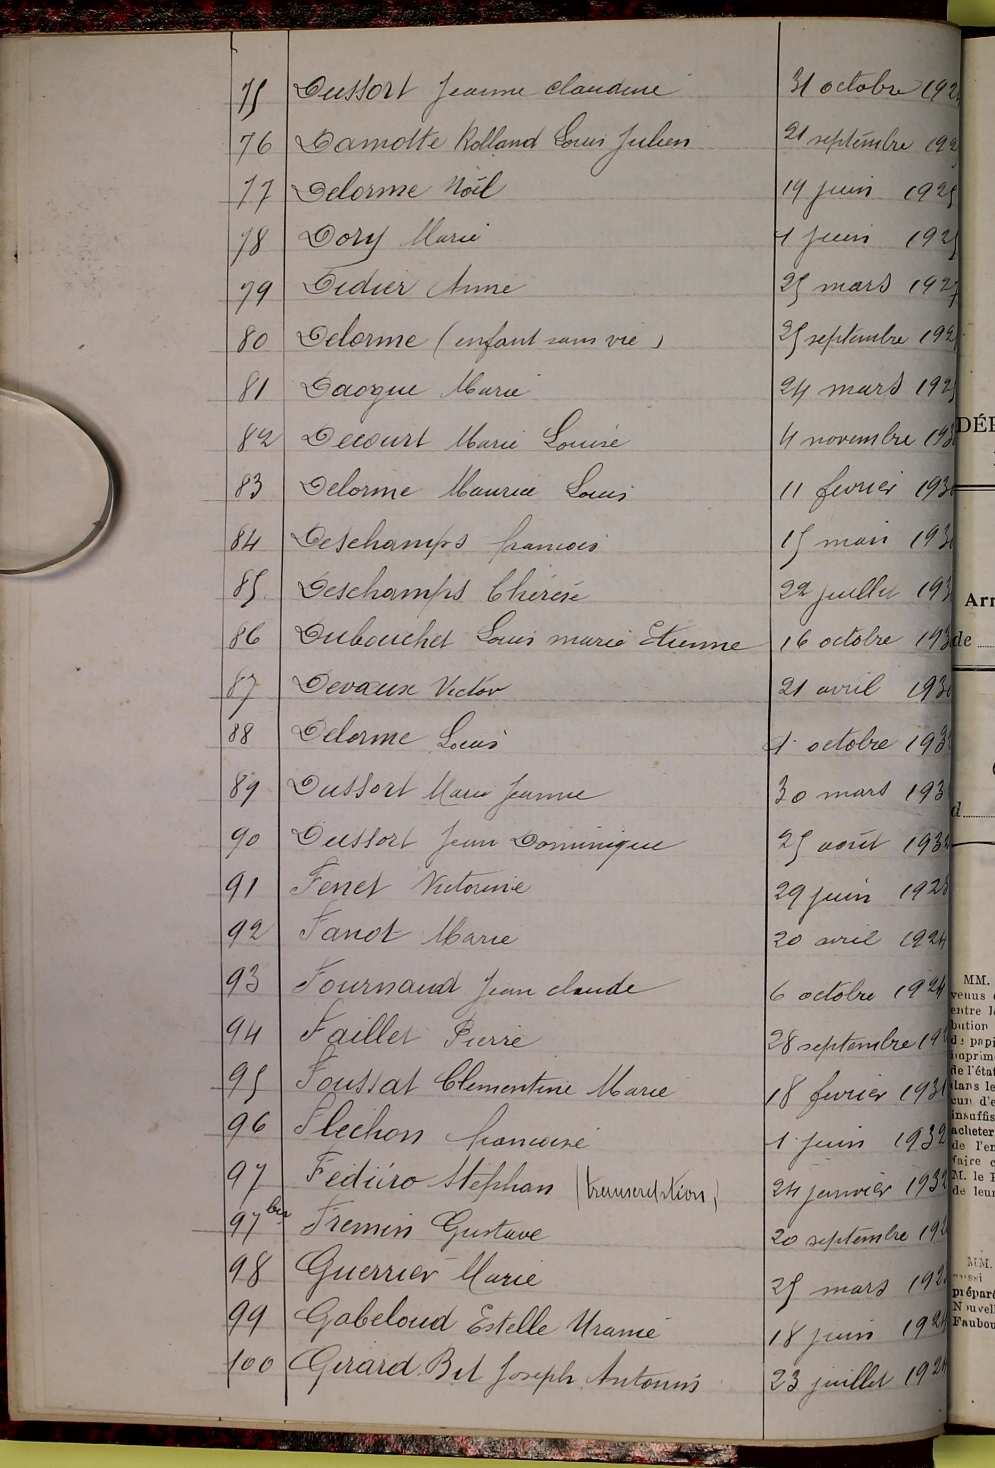 75 Dussort Jeanne Claudine 31 octobre 192
76 Damotte Rolland Louis Julien 21 septembre 192
77 Delorme Noël 19 juin 1925
78 Dory Marie 1 juin 192
79 Didier Anne 25 mars 1927
80 Delorme (enfant sans vie) 25 septembre 192
81 Marie 24 mars 192
82 Decourt Marie Louise 4 novembre 193
83 Delorme Maurice Louis 11 fevrier 193
84 Deschamps francois 15 193
85 Deschamps Thérèse 22 juillet 193
86 Dubouchet Louis marie Etienne 16 octobre 193
87 Devaux Victor 21 avril 193
88 Delorme Louis 1 octobre 193
89 Dussort Marie Jeanne 30 mars 193
90 Dussort Jean Dominique 25 août 193
91 Fenet Victorine 29 juin 1923
92 Fanot Marie 20 avril 1924
93 Fournaud Jean claude 6 octobre 1924
94 Faillet Pierre 28 septembre 19
95 Foussat Clementine Marie 18 fevrier 1931
96 Flechon francoise 1 juin 1932
97 Fediuro Stephan (transcription) 24 janvier 1932
97 bis Fremin Gustave 20 septembre 192
98 Guerrier Marie 25 mars 192
99 Gabeloud Estelle Uranie 18 juin 1924
100 Girard Bet Joseph Antonin 23 juillet 1924
DÉP
Arr
de
d
MM.
venus
entre l
bution
de papi
imprim
de l'état
dans le
cun d'e
insuffis
acheter
de l'en
faire c
M. le P
de leur
MM.
préparé
Nouvell
Faubou